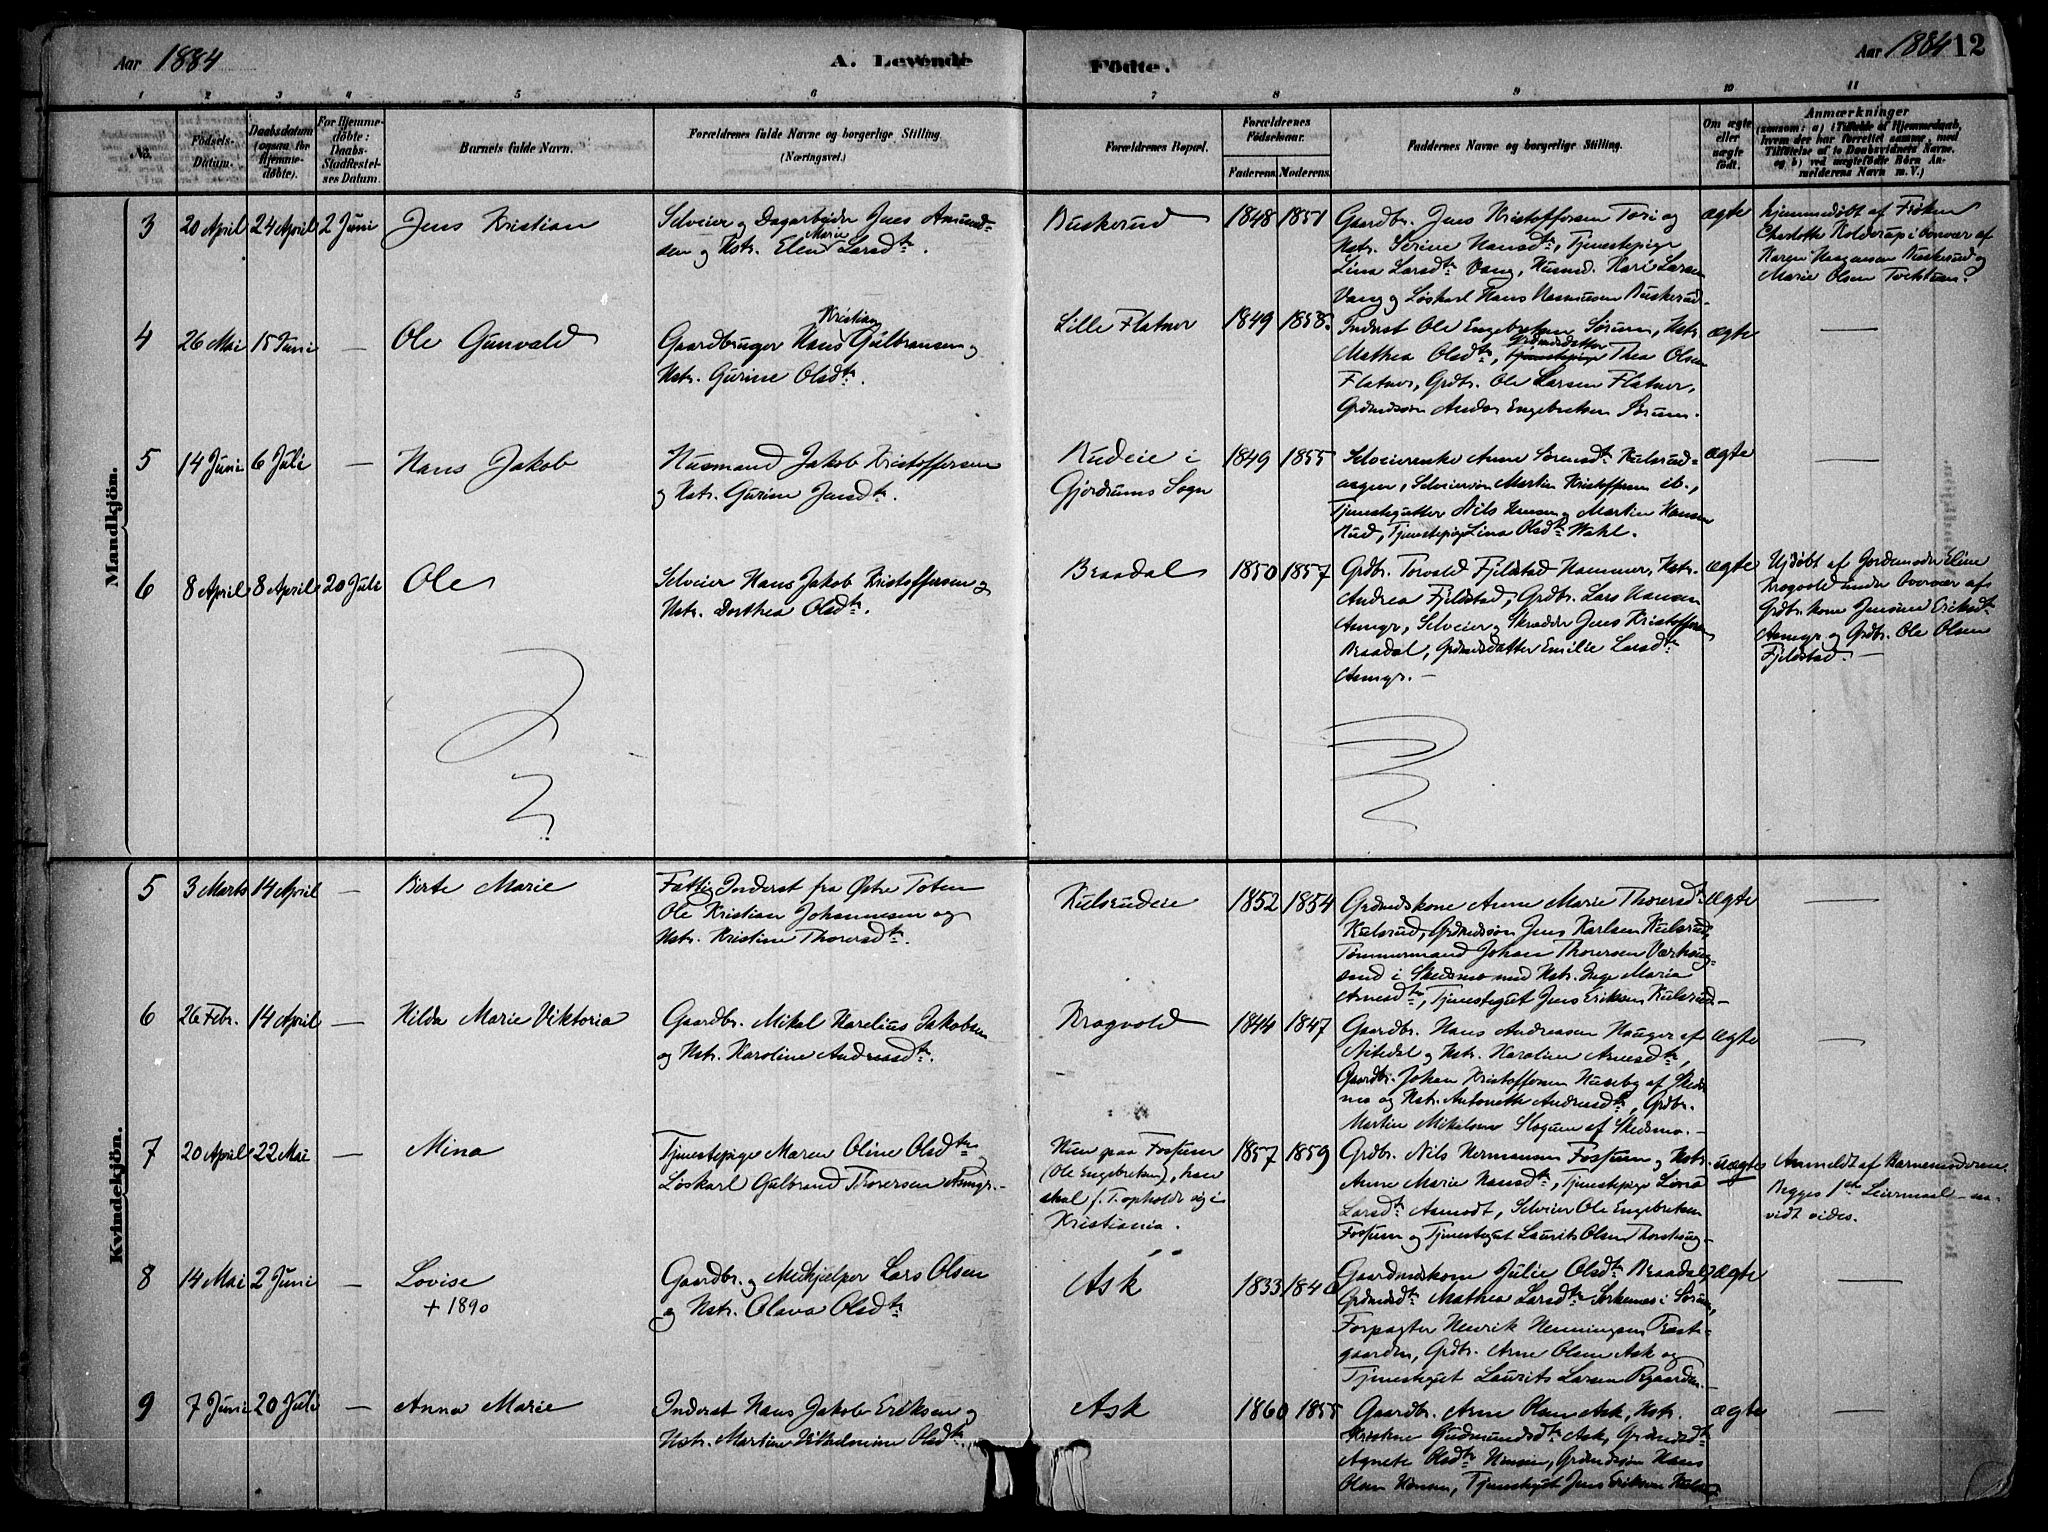 Aar 1884
A. Levende
Födte.
Aar 1884
12
1 2 3 4 5 6 7 8 9 10 11
No.
Födsels-
Datum.
Daabsdatum
(ogsaa for
Hjemme-
døbte).
For Hjemme-
døbte:
Daabs-
Stadfæstel-
ses Datum.
Barnets fulde Navn.
Forældrenes fulde Navne og borgerlige Stilling.
(Næringsvei.)
Forældrenes Bopæl.
Forældrenes
Födselsaar.
Faderens. Moderens.
Faddernes Navne og borgerlige Stilling.
Om ægte
eller
uægte
født.
Anmærkninger
(saasom: a) i Tilfælde af Hjemmedaab,
hvem der har forrettet samme, med
Tilføielse af to Daabsvidners Navne,
og b) ved uægtefødte Børn An-
melderens Navn m. V.)
Mandkjön.
3 20 April 24 April 2 Juni
Jens Kristian
Selveier og Dagarbeider Jens Amund-
Marie
sen og Hstr. Elen Larsdtr.
Buskerud
1848 1851
Gaardbr. Jens Kristoffersen Tori og
Hstr. Serine Hansdtr, Tjenestepige
Lina Larsdtr Vang, Husmd. Kari Larsen
Vang og Løskarl Hans Rasmusen Buskerud.
ægte
hjemmedøbt af Frøken
Charlotte Kolderup i Overvær af
Karen Buskerud og
Marie Olsen
4 26 Mai 15 Juni —
Ole Gunvald
Kristian
Gaardbruger Hans Gulbransen og
Hstr. Gurine Olsdtr.
Lille Flatner
1849 1858
Inderst Ole Engebretsen Sørum, Hstr.
Grdmdsdatter
Mathea Olsdtr, Tjenestepige Thea Olsen
Flatner, Grdbr. Ole Larsen Flatner,
Grdmdssøn Anders Engebretsen Sørum.
ægte —
5 14 Juni 6 Juli —
Hans Jakob
Husmand Jakob Kristoffersen
og Hstr. Gurine Jensdtr.
Rudeie i
Gjerdrums Sogn
1849 1855
Selveierenke Anne Sørensdtr Kulsrud-
aagen, Selveiersøn Martin Kristoffersen ib.,
Tjenestegutter Nils Hansen og Martin Hansen
Rud, Tjenestepige Lina Olsdtr Wahl.
ægte —
6 8 April 8 April 20 Juli
Ole
Selveier Hans Jakob Kristoffersen og
Hstr. Dorthea Olsdtr.
Braadal
1850 1857
Grdbr. Torvald Fjeldstad Hammer, Hstr.
Andrea Fjeldstad, Grdbr. Lars Hansen
Asmyr, Selveier og Skrædder Jens Kristoffersen
Braadal, Grdmdsdatter Emilie Larsdtr
Asmyr. —
ægte
Hjdøbt af Jordemoder Eline
Krogvold under Overvær af
Grdbr.kone Jensine Eriksdtr
Asmyr og Grdbr. Ole Olsen
Fjeldstad. —
Kvindekjön.
5 3 Marts 14 April —
Berte Marie
Fattig Inderst fra Østre Toten
Ole Kristian Johannesen og
Hstr. Kristine Thoresdtr.
Kulsrudeie
1852 1854
Grdmdskone Anne Marie Thoresdtr
Kulsrud, Grdmdssøn Jens Karlsen Kulsrud,
Tømmermand Johan Thoresen
i Skedsmo med Hstr. Inge Maria
Arnesdtr, Tjenestegut Jens Eriksen Kulsrud. —
ægte —
6 26 Febr. 14 April —
Hilda Marie Viktoria
Gaardbr. Mikal Karelius Jakobsen
og Hstr. Karoline Andreasdtr.
Krogvold
1844 1847
Gaardbr. Hans Andreasen Hauger af
Nitedal og Hstr. Karoline Arnesdtr,
Gaardbr. Johan Kristoffersen Huseby af Skeds-
mo og Hstr. Antonette Andreasdtr, Grdbr.
Martin Mikalsen Slogum af Skedsmo. —
ægte —
7 20 April 22 Mai —
Mina
Tjenestepige Maren Oline Olsdtr og
Løskarl Gulbrand Thoresen Asmyr. —
Hun paa Fossum
(Ole Engebretsen), han
skal f. T. opholde sig i
Kristiania.
1857 1859
Grdbr. Nils Hermansen Fossum og Hstr.
Anne Marie Hansdtr, Tjenestepige Lovisa
Larsdtr Asmodt, Selveier Ole Engebretsen
Fossum og Tjenestegut Laurits Olsen
uægte
Anmeldt af Barnemoderen.
Begges 1ste Leiermaal – saa-
vidt vides.
8 14 Mai 2 Juni —
Lovise
+ 1890
Gaardbr. og Medhjælper Lars Olsen
og Hstr. Olava Olsdtr
Ask
1833 1840
Gaardmdskone Julie Olsdtr Braadal,
Grdmdsdtr Mathea Larsdtr i Sørum,
Forpagter Henrik Henningsen Præste-
gaarden, Grdbr. Arne Olsen Ask og
Tjenestegut Laurits Larsen
ægte
9 7 Juni 20 Juli —
Anna Marie
Inderst Hans Jakob Eriksen og
Hstr. Martine Vilhelmine Olsdtr.
Ask
1860 1855
Gaardbr. Arne Olsen Ask, Hstr.
Kristine Gudmundsdtr Ask, Grdmdsdtr
Agnete Olsdtr, Grdmdssøn Hans
Olsen, Tjenestegut Jens Eriksen
ægte —